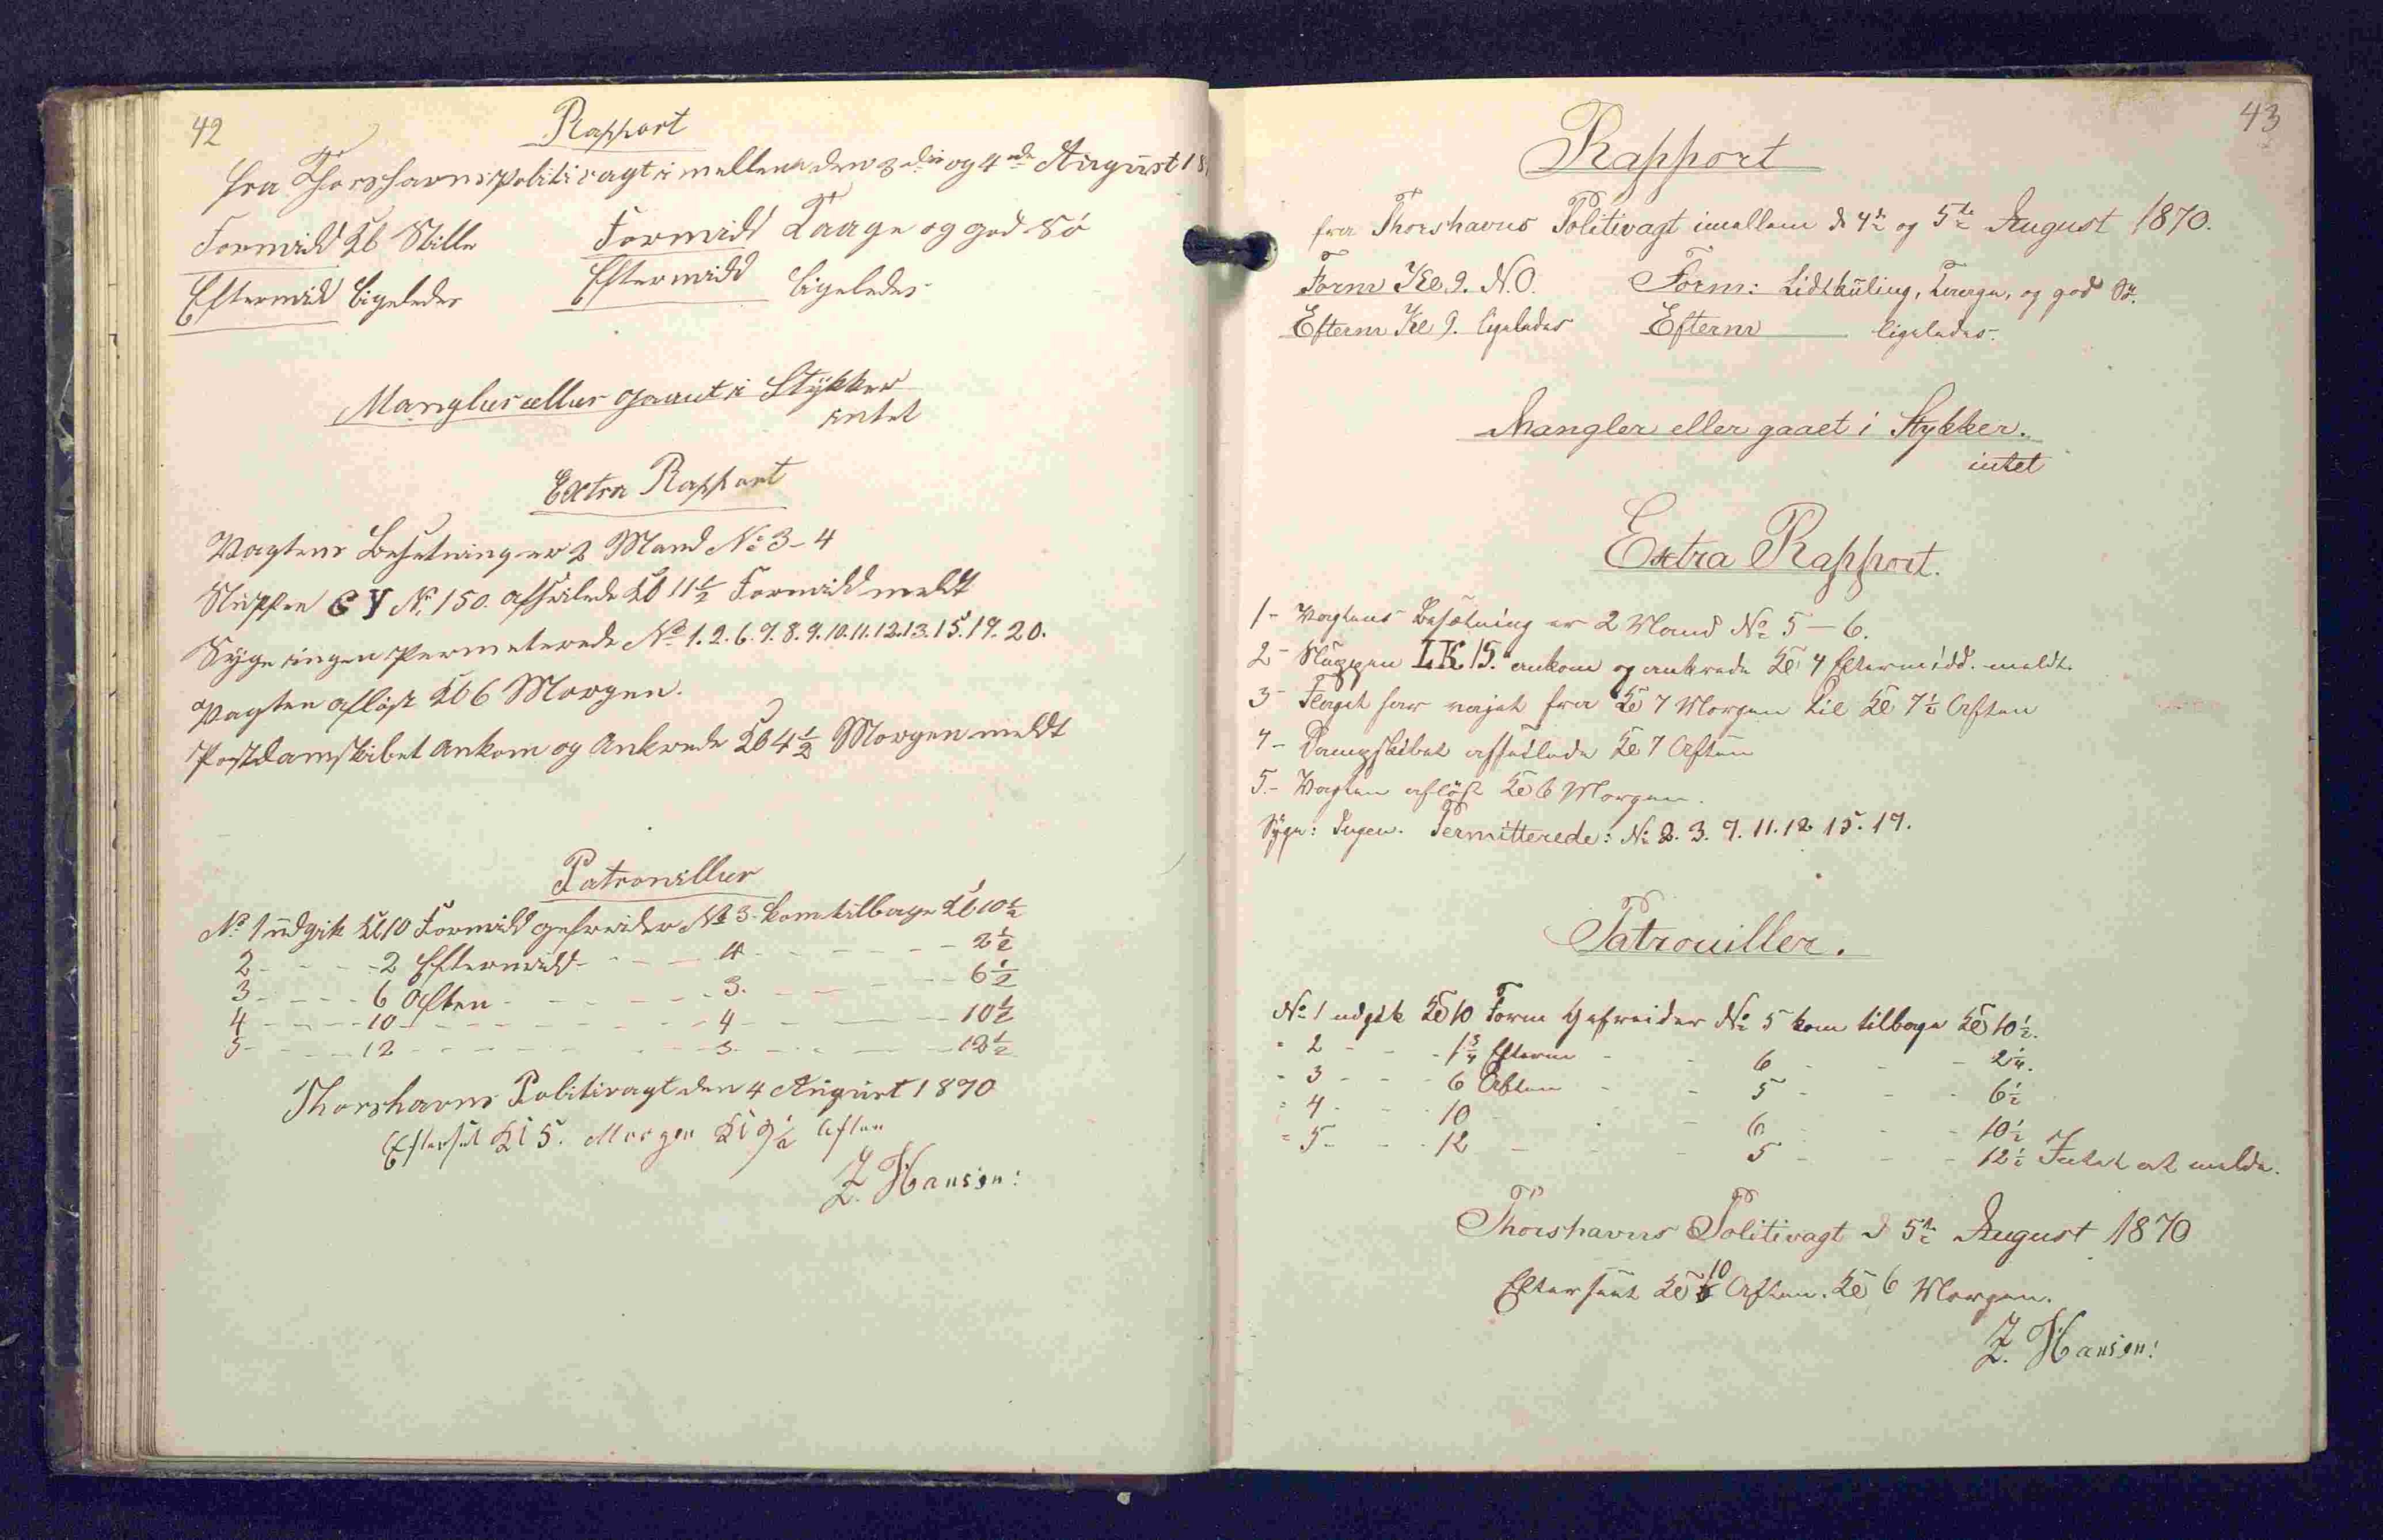 42
Rapport
fra Thorshavns politivagt i mellem den 3die og 4de August 18
Formidd Kl Stille Formidd Taage og god Sö
Eftermid ligeledes Eftermidd ligeledes
Mangler eller gaaet i Stykker
intet
Extra Rapport
Vagtens Besetning er 2 Mand No 3-4
Sluppen No. 150. afseilede Kl 11 1/2 Formidd meldt
Syge ingen Permeterede No 1. 2. 6. 7. 8. 9. 10. 11. 12. 13. 15. 19. 20.
Vagten aflöst Kl 6 Morgen.
Postdamskibet Ankom og Ankrede Kl 4 1/2 Morgen meldt
Patrouiller
No 1 udgik Kl 10 Formidd gefreider No 3 kom tilbage Kl 10 1/2
2 - - - - 2 Eftermidd - - - 4 - - - - 2 1/2
3 - - - - 6 Aften - - - - 3. - - - - 6 1/2
4 - - - - 10 - - - - - - 4 - - - - 10 1/2
5 - - - - 12 - - - - - - 3 - - - - 12 1/2
Thorshavns Politivagt den 4 August 1870
Efterset Kl 5. Morgen Kl 9 1/2 Aften
Z. Hansen:
43
Rapport
fra Thorshavns Politivagt imellem d 4de og 5te August 1870.
Form Kl. 9. N.O. Form: Lidt kuling, Taage, og god Sö.
Efterm Kl 9. ligeledes Efterm ligeledes.
Mangler eller gaaet i Stykker.
intet
Extra Rapport.
1 - Vagtens Besætning er 2 Mand No 5 - 6.
2 - Sluppen LK 15. ankom og ankrede Kl 4 Eftermidd. meldt.
3 - Flaget har vajet fra Kl 7 Morgen til Kl 7 1/2 Aften
4 - Dampskibet afseilede Kl 7 Aften
5. - Vagten aflöst Kl 6 Morgen.
Syge: Ingen. Permitterede: No 2. 3. 9. 11. 12. 15. 19.
Patrouiller.
No 1 udgik Kl 10 Form Gefreider No 5 kom tilbage Kl 10 1/2.
" 2 - - - 1 3/4 Efterm - - 6 - - - 2 1/4.
" 3 - - - 6 Aften - - 5 - - - 6 1/2
" 4 - - - 10 - - - 6 - - - 10 1/2
" 5 - - - 12 - - - 5 - - - 12 1/2 Intet at melde.
Thorshavns Politivagt d 5te August 1870
Efterseet Kl 10 Aften. Kl 6 Morgen.
Z. Hansen: